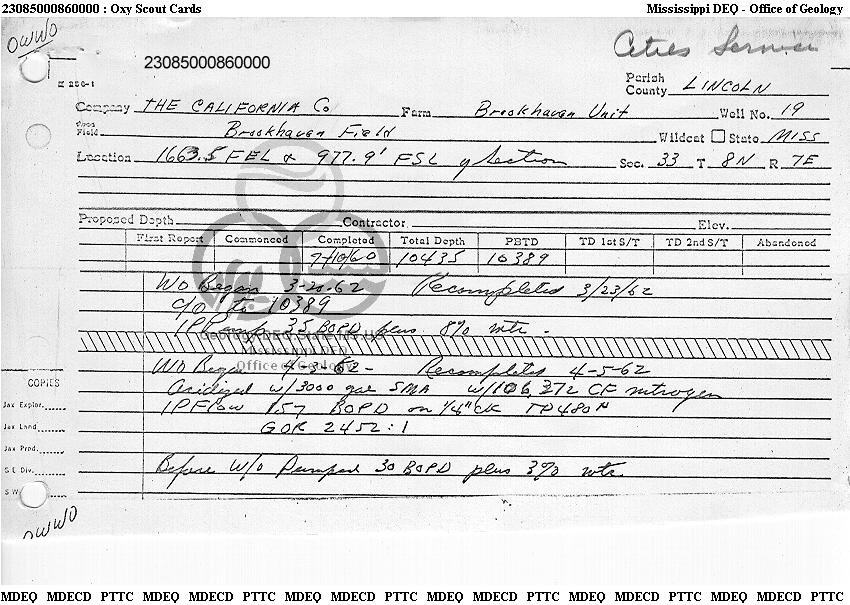 23085000860000 : Oxy Scout Cards Mississippi DEQ - Office of Geology
OWWO
Cities Service
23085000860000
Parish
County LINCOLN
Company THE CALIFORNIA Co Farm Brookhaven Unit Well No. 19
Field Brookhaven Field Wildcat State MISS
Location 1663.5 FEL & 977.9' FSL of Section Sec. 33 T 8N R 7E
Proposed Depth Contractor Elev.
First Report Commenced Completed Total Depth PBTD TD 1st S/T TD 2nd S/T Abandoned
7-10-60 10435 10389
W/O Began 3-20-62 Recompleted 3/23/62
C/O to 10389
IP Pump 35 BOPD plus 8% wtr.
Geology.DEQ.State.MS.US
Mississippi DEQ
Office of Geology
W/O Began 62 - Recompleted 4-5-62
COPIES
Acidized w/3000 gal SMA w/106,272 CF nitrogen
Jax Explor.
IP Flow 157 BOPD on 1/4" CK TP 480#
Jax Land
GOR 2452:1
Jax Prod.
Before W/O Pumped 30 BOPD plus 3% wtr.
S E Div.
S W
OWWO
MDEQ MDECD PTTC MDEQ MDECD PTTC MDEQ MDECD PTTC MDEQ MDECD PTTC MDEQ MDECD PTTC MDEQ MDECD PTTC